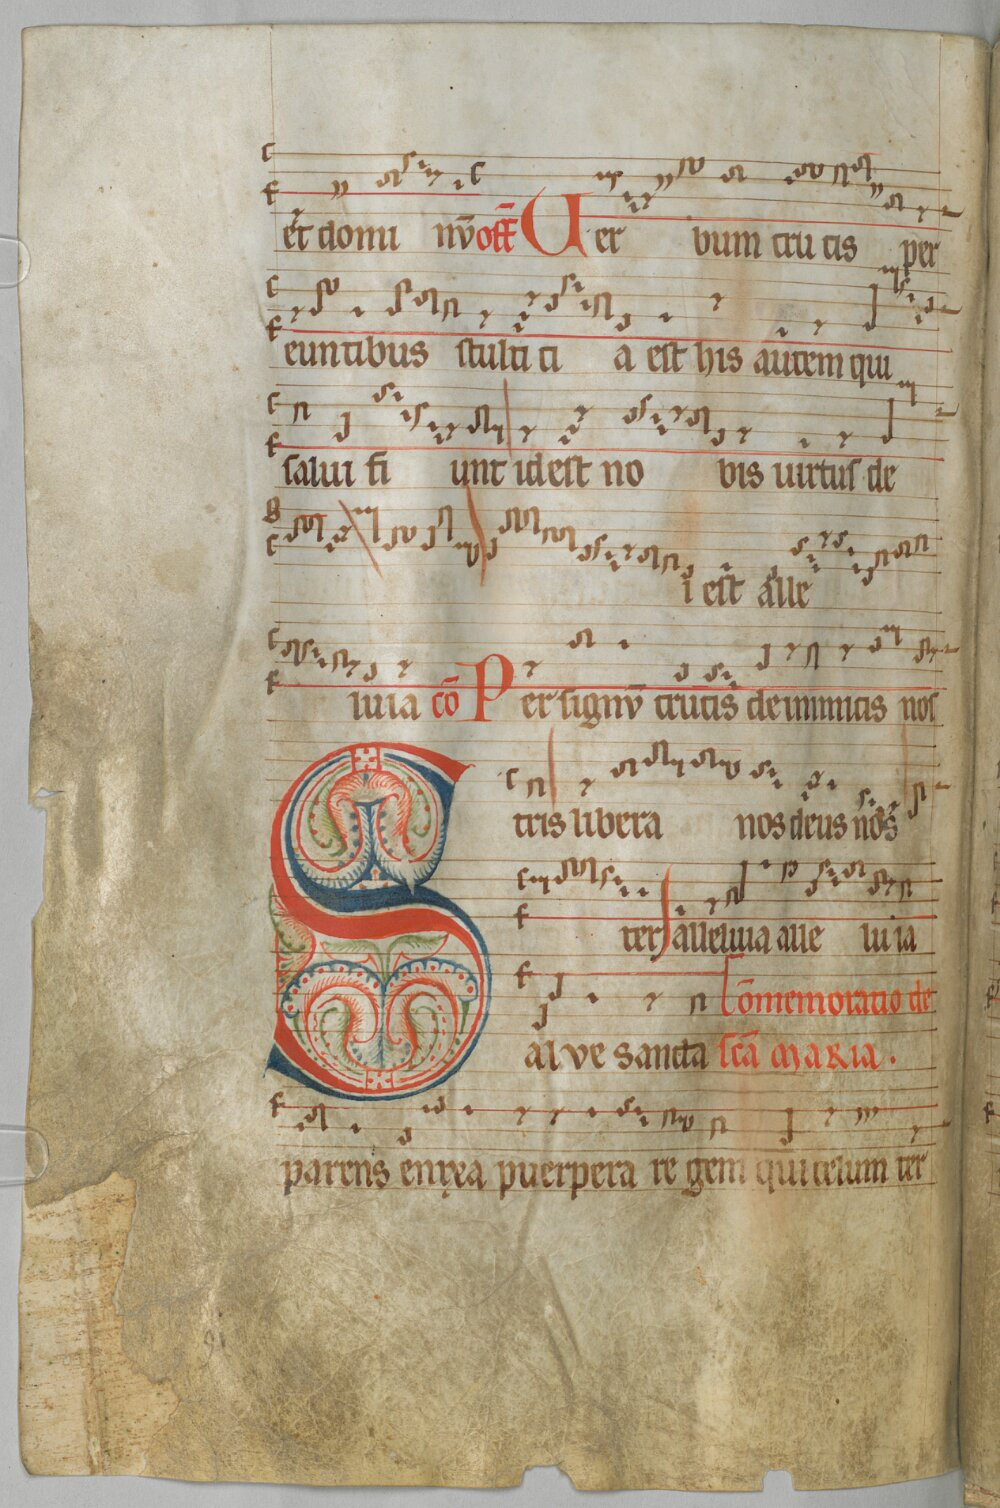 et domi nū off Uer bum cru cis per
euntibus stulti ti a est his autem qui
salui fi unt id est no bis uirtus de
i est alle
luia cō Per signū crucis de inimicis nos
tris libera nos deus nos
ter alleluia alle luia
Cōmemoratio de
alve sancta scā maria .
parens enixa puerpera re gem qui celum ter